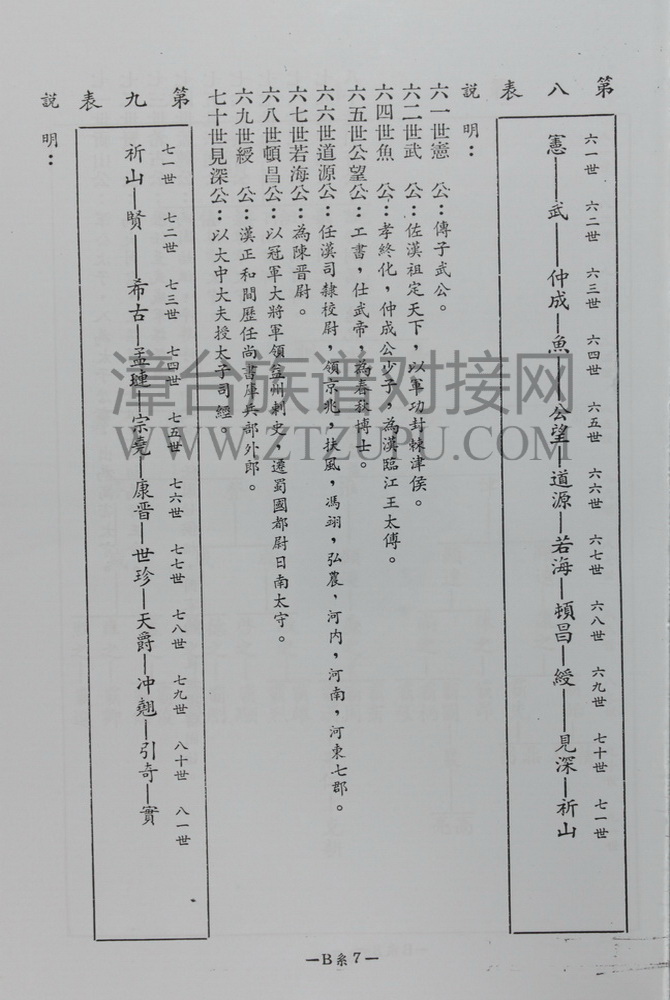 第八表
六一世 六二世 六三世 六四世 六五世 六六世 六七世 六八世 六九世 七十世 七一世
憲—武—仲成—魚—公望—道源—若海—頓昌—綬—見深—祈山
説明：
六一世憲 公：傳子武公。
六二世武 公：佐漢祖定天下，以軍功封棘津侯。
六四世魚 公：孝終化，仲成公少子，為漢臨江王太傅。
六五世公望公：工書，仕武帝，為春秋博士。
六六世道源公：任漢司隸校尉，領京兆，扶風，馮翊，弘農，河內，河南，河東七郡。
六七世若海公：為陳晉尉。
六八世頓昌公：以冠軍大將軍領益州刺史，遷蜀國都尉日南太守。
六九世綬 公：漢正和間歷任尚書庫兵部外郎。
七十世見深公：以大中大夫授太子司經。
第九表
七一世 七二世 七三世 七四世 七五世 七六世 七七世 七八世 七九世 八十世 八一世
祈山—賢—希古—孟璉—宗堯—康晋—世珍—天爵—冲翹—引奇—實
説明：
—B系7—
漳台族谱对接网
WWW.ZTZUPU.COM